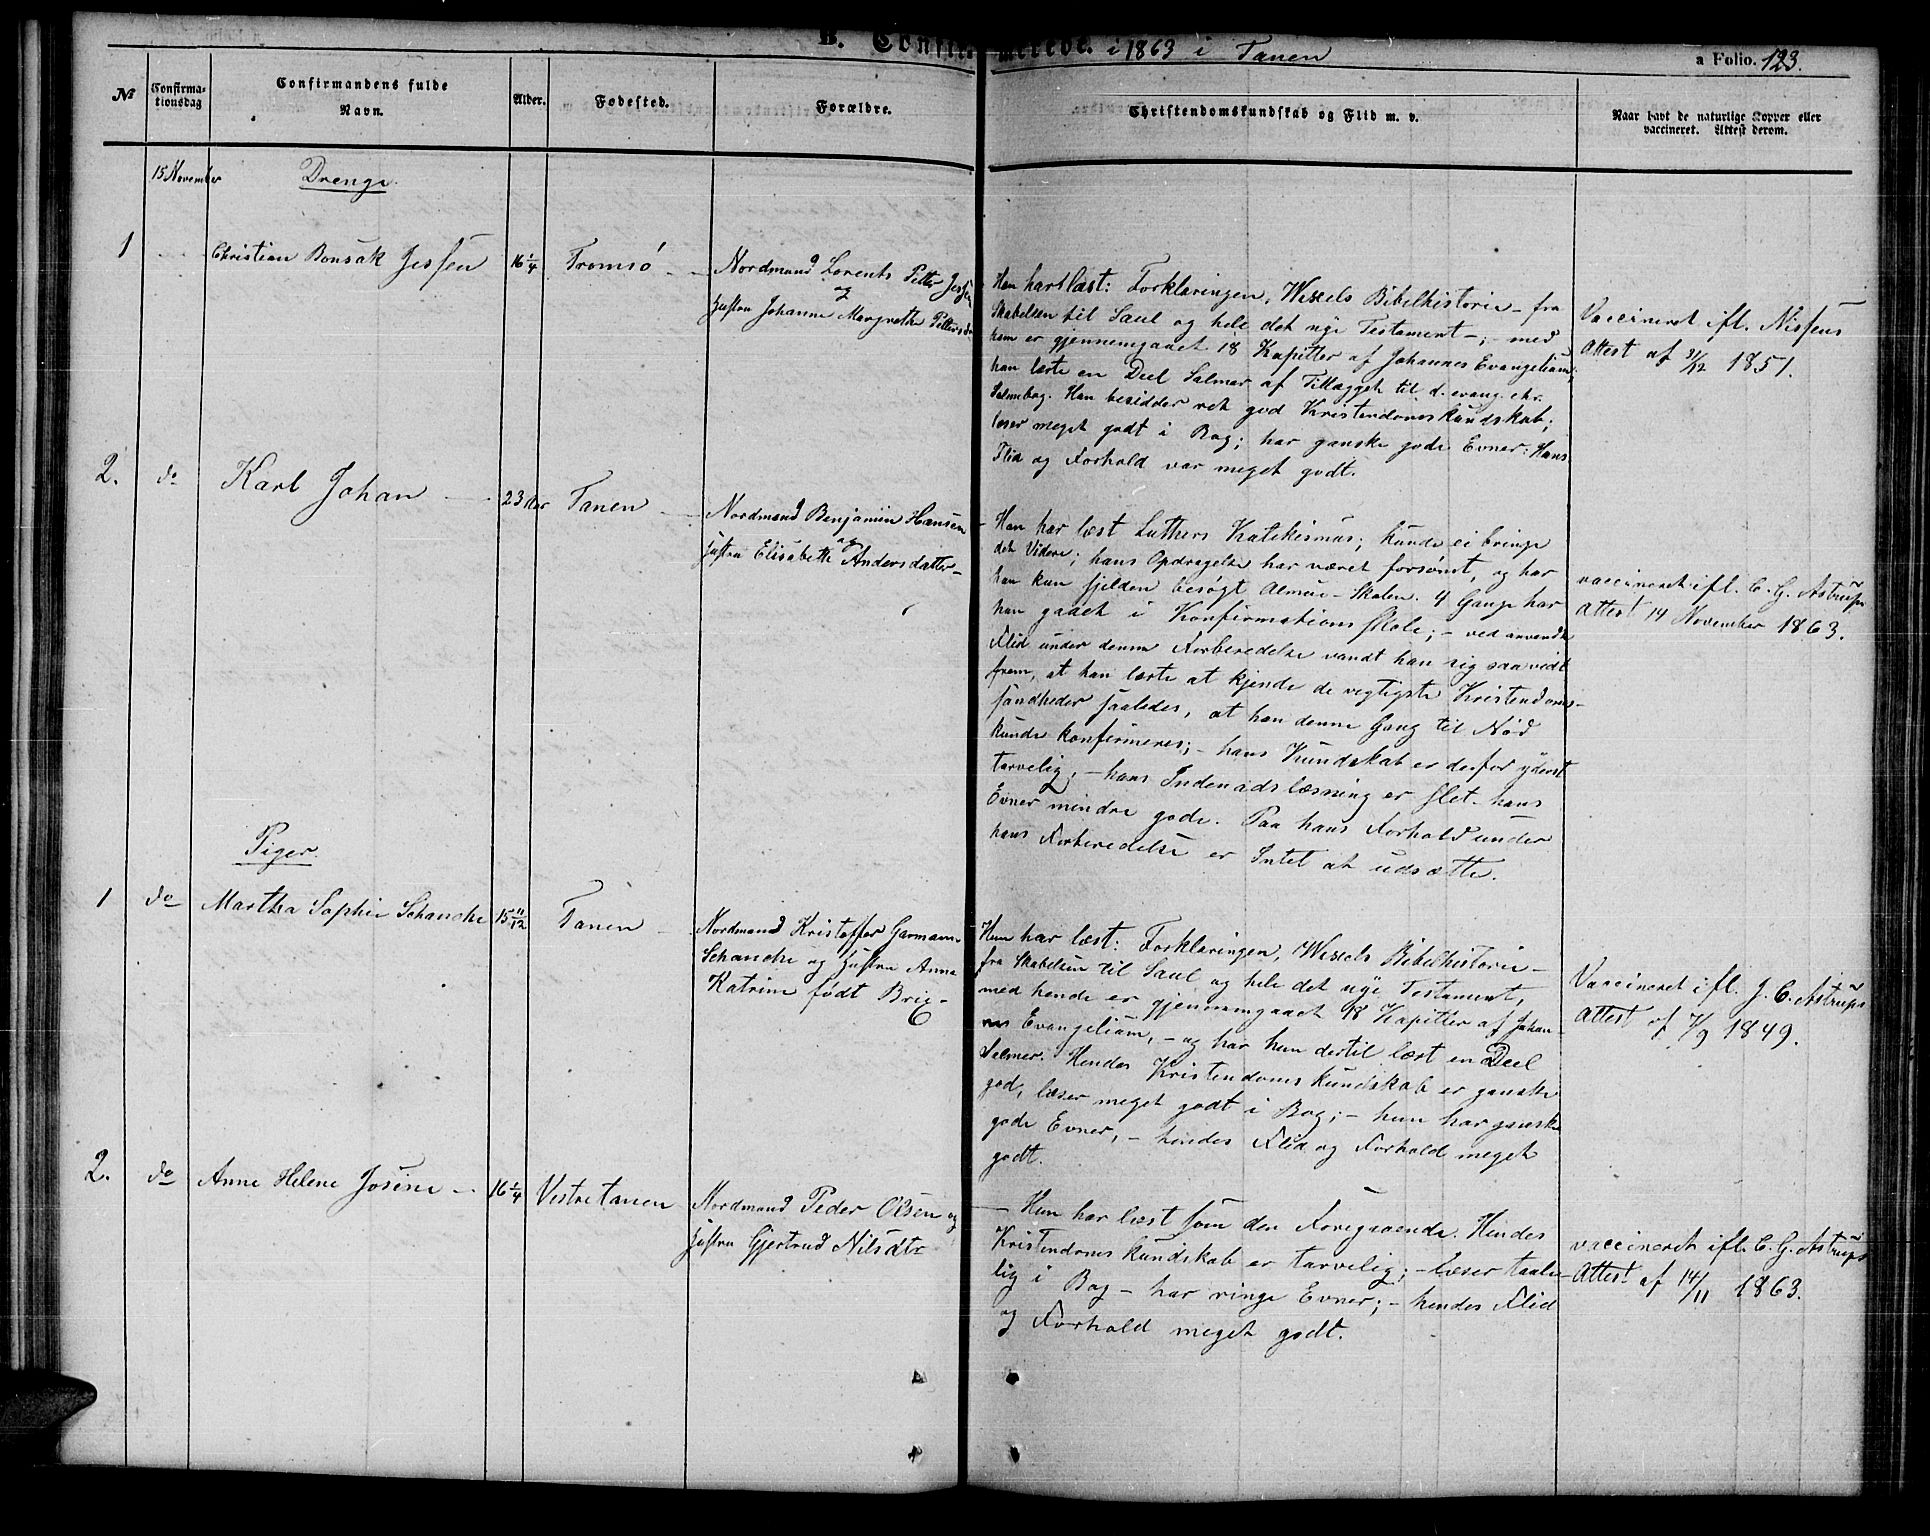 B. Confirmerede. i 1863 i Tanen
a Folio. 123.
№
Confirma-
tionsdag
Confirmandens fulde
Navn.
Alder.
Fødested.
Forældre.
Christendomskundskab og Flid m. v.
Naar havt de naturlige Kopper eller
vaccineret. Attest derom.
15 November
Drenge.
1
Christian Bonsak Jessen
16 1/4
Tromsø
Nordmand Lorents Petter Jessen
og
Hustru Johanne Margrethe Pettersd
Han har læst: Forklaringen, Wexels Bibelhistorie – fra
Skabelsen til Saul og hele det nye Testament –; – med
ham er gjennemgaaet 18 Kapitler af Johannes Evangelium;
han lærte en Deel Salmer af Tillægget til d. evang. chr.
Salmebog. Han besidder ret god Kristendomskundskab;
læser meget godt i Bog; har ganske gode Evner: Hans
Flid og Forhold var meget godt.
Vaccineret ifl. Nissens
Attest af 31/12 1851.
2.
do
Karl Johan
23 Aar
Tanen
Nordmand Benjamin Hansen
og
Hustru Elisabeth Andersdatter –
Han har læst Luthers Katekismus; kunde ei bringe
det videre; hans Opdragelse har været forsømt, og har
han kun sjelden besøgt Almue-Skolen. 4 Gange har
han gaaet i Konfirmationsskole; – ved anvendt
Flid under denne Forberedelse vandt han sig saavidt
frem, at han lærte at kjende de vigtigste Kristendoms-
sandheder saaledes, at han denne Gang til Nød
kunde konfirmeres; – hans Kundskab er derfor yderst
tarvelig, – hans Indenadslæsning er slet – hans
Evner mindre gode. Paa hans Forhold under
hans Forberedelse er Intet at udsætte.
vaccineret ifl. C. G. Astrups
Attest 14 November 1863.
Piger.
1
do
Martha Sophie Schanche
15 11/12
Tanen
Nordmand Kristoffer Garmann
Schanche og Hustru Anna
Katrine født Brix –
Hun har læst: Forklaringen, Wexels Bibelhistorie –
fra Skabelsen til Saul og hele det nye Testament,
med hende er gjennemgaaet 18 Kapitler af Johan-
nes Evangelium, – og har hun dertil læst en Deel
Salmer. Hendes Kristendomskundskab er ganske
god, læser meget godt i Bog; – hun har ganske
gode Evner, – hendes Flid og Forhold meget
godt.
Vaccineret ifl. J. C. Astrups
Attest af 7/9 1849.
2.
do
Anne Helene Josine
16 1/4
Vestretanen
Nordmand Peder Olsen og
Hustru Gjertrud Nilsdtr
– Hun har læst som den Foregaaende. Hendes
Kristendomskundskab er tarvelig; – læser taale-
lig i Bog – har ringe Evner; – hendes Flid
og Forhold meget godt.
vaccineret ifl. C. G. Astrups
Attest af 14/11 1863.